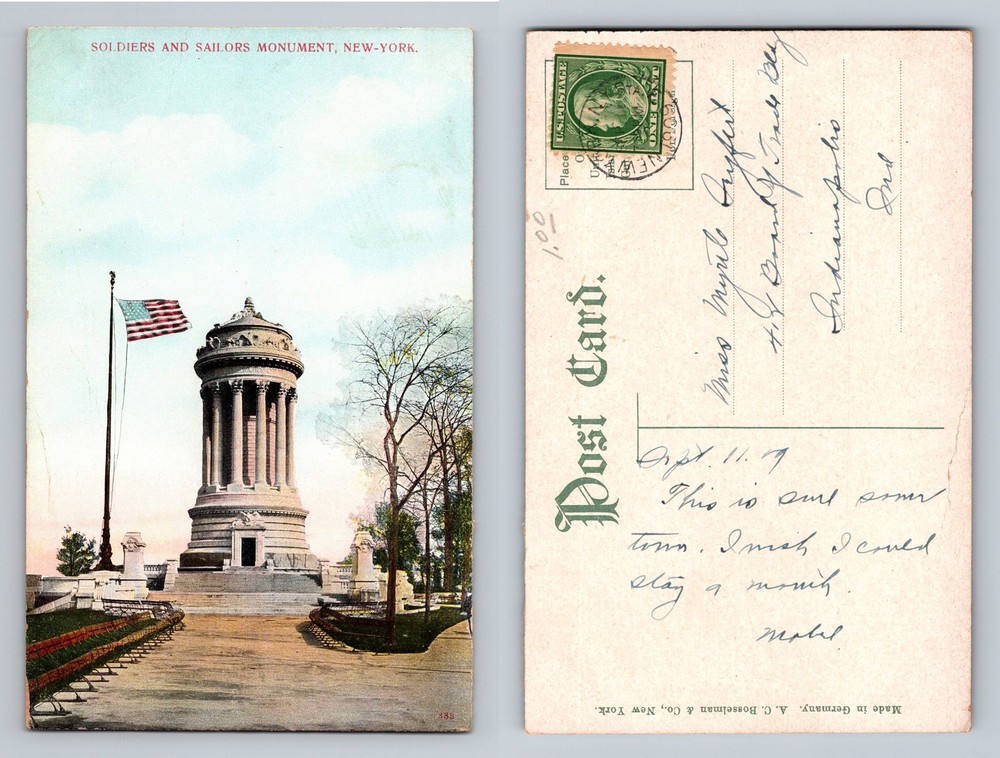 SOLDIERS AND SAILORS MONUMENT, NEW-YORK.
433
U.S. POSTAGE
ONE CENT
Place
NEW
1.00
Post Card.
Miss Myrtle
Board of Trade Bldg
Indianapolis
Ind
Sept. 11. 09
This is sure some
town. I wish I could
stay a month.
Mabel
Made in Germany. A. C. Bosselman & Co., New York.